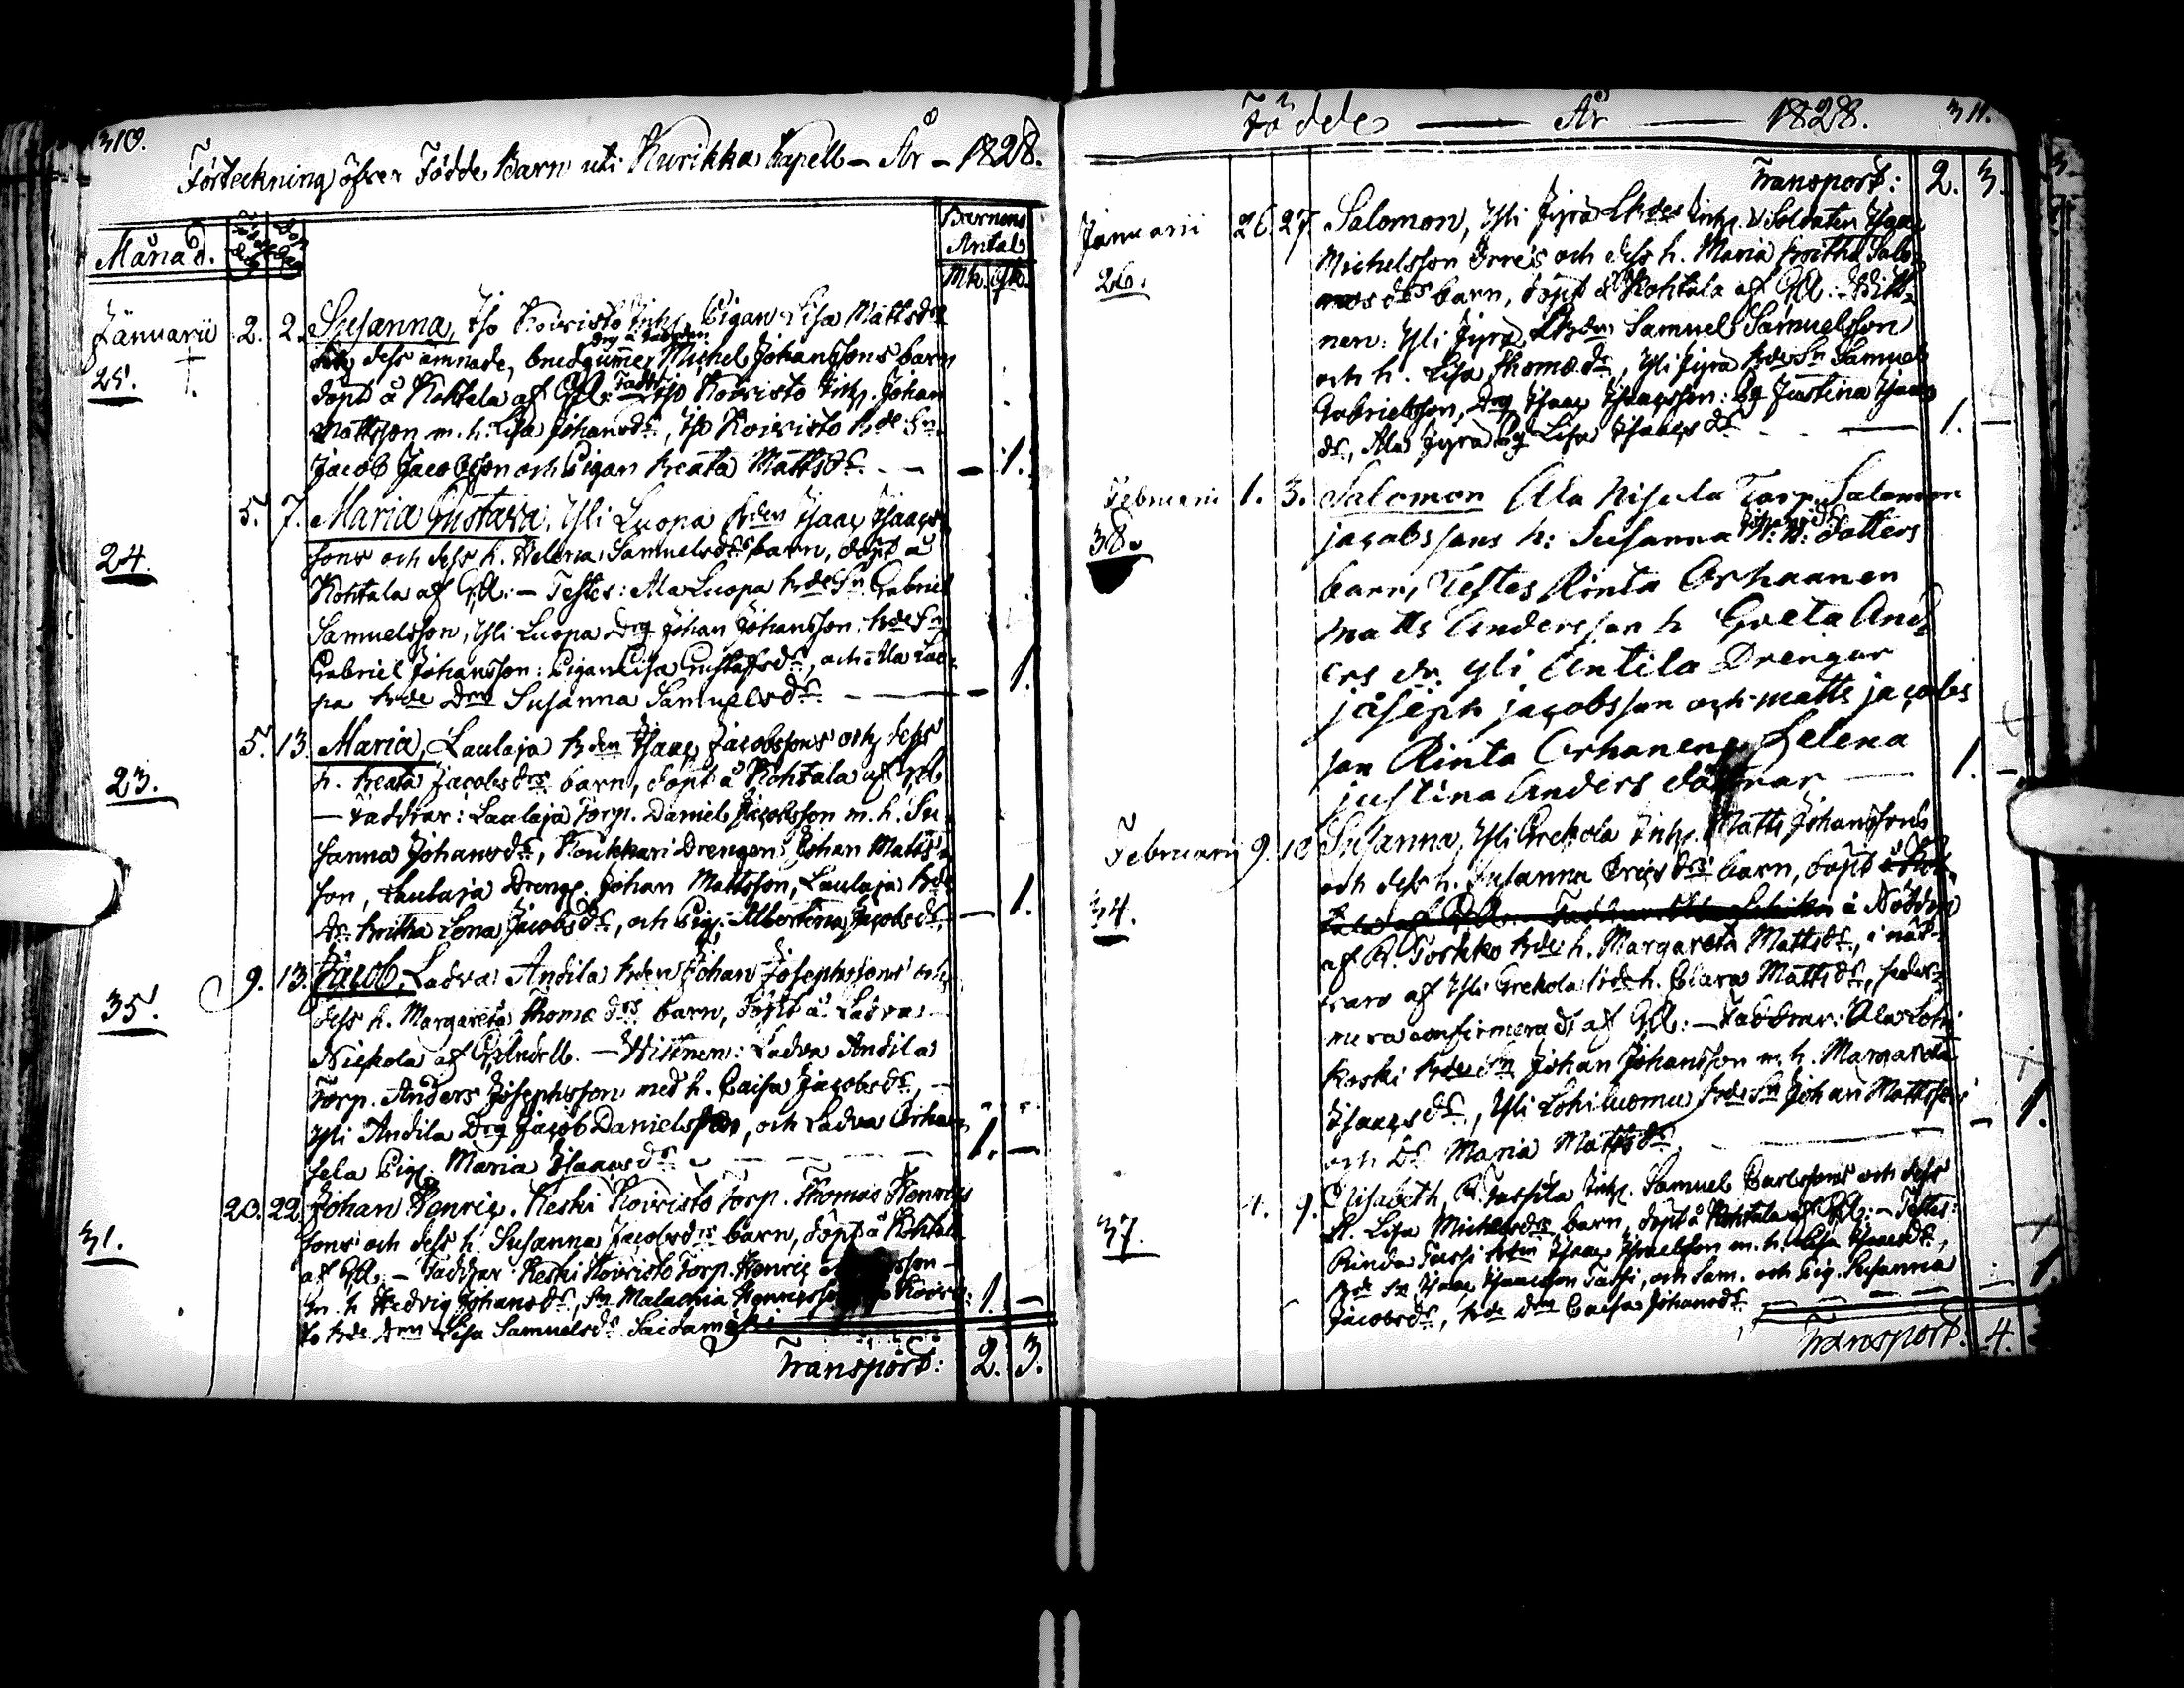 310.
Förteckning öfver Födde Barn uti Kurikka Capell – År – 1828.
Månad.
Barnens
Antal
Mk. Qk.
Januarii 2. 2. Susanna, Iso Koivisto Inh. Pigan Lisa Mattsdr
dess ämnade, brudgumme Michel Johanssons barn
25. döpt å Kohtala af Iso Koivisto Inh. Johan
Mattsson m. h. Lisa Johansdr, Iso Koivisto bde Sn
Jacob Jacobsson och Pigan Beata Mattsdr. — 1.
5. 7. Maria Gustava, Yli Luopa Bden Isaac Isaacs
24. sons och dess h. Helena Samuelsdrs barn, döpt å
Kohtala af – Testes: Ala Luopa bde Sn Gabriel
Samuelsson, Yli Luopa Drg Johan Johansson, bde Sn
Gabriel Johansson: Pigan Lisa Gustafsdr, och Ala Luo-
pa bde Drn Susanna Samuelsdr — 1.
5. 13. Maria, Laulaja Bden Isaac Jacobssons och dess
23. h. Beata Jacobsdrs barn, döpt å Kohtala af
— Faddrar: Laulaja Torp. Daniel Jacobsson m. h. Su-
sanna Johansdr, Koukkari Drengen Johan Matts-
son, Laulaja Dreng. Johan Mattsson, Laulaja bde
Dr. Britha Lena Jacobsdr, och Pig. Albertina Jacobsdr. — 1.
9. 13. Jacob, Ladva Andila Bden Johan Josephssons och
35. dess h. Margareta Thomædrs barn, döpt å Ladva
af — Wittnen: Ladva Andila
Torp. Anders Josephsson med h. Caisa Jacobsdr,
Yli Andila Drg Jacob Danielsson, och Ladva
Pig. Maria Isaacsdr 1. —
20. 22. Johan Henric, Keski Koivisto Torp. Thomas Henrics
31. sons och dess h. Susanna Jacobsdrs barn, döpt å Kohtala
af – Faddrar: Keski Koivisto Torp. Henric
m. h. Hedvig Johansdr, Sn Malachia Henricsson Koivis-
to bde Drn Lisa Samuelsdr 1. —
Transport: 2. 3.
Födde — År — 1828. 311.
Transport: 2. 3.
Januarii 26. 27. Salomon, Yli Jyrä Inh. Soldaten Isaac
26. Michelsson och dess h. Maria Britha Salo-
mosdrs barn, döpt å Kohtala af Witt-
nen: Yli Jyrä Samuel Samuelsson
och h. Lisa Thomædr, Yli Jyrä bde Sn Samuel
Gabrielsson, Drg Isaac Isaacsson: Pg Justina Isaacs
dr, Ala Jyrä Pg Lisa Isaacsdr 1. —
Februari 1. 3. Salomon Ala Nisula Torp. Salomon
38. jacobs sons h: Susanna Johansdr N: N: Dotters
barn, Testes Rinta Orhaanen
matts Andersson h Greta And
ers dr. yli Antila Drengar
jåseph jacobsson och matts jacobs
son Rinta Orhanen Helena
justina Anders döttrar — 1. —
Februarii 9. 10. Susanna, Yli Grekola Inh. Matts Johanssons
34. och dess h. Susanna Ericsdrs barn, döpt
å Nöden
af bde h. Margareta Mattsdr, i när-
varo af Yli Grekola bde h. Clara Mattsdr, seder-
mera confirmeradt af — Faddrar: Ala Lohi
Koski bde Sn Johan Johansson m. h. Margareta
Isaacsdr, Yli Lohiluoma bde Sn Johan Mattsson
och Dr Maria Mattsdr — 1.
4. 9. Elisabeth, Inh. Samuel Carlssons och dess
37. h. Lisa Michelsdrs barn, döpt å Kohtala af – Testes:
Rinda Tassi Bden Isaac Israelsson m. h. Lisa Isaacsdr,
bde Sn Isaac Isaacsson Tassi, och Sam. och Pig. Susanna
Jacobsdr, bde Drn Caisa Johansdr 1.
Transport: 4.